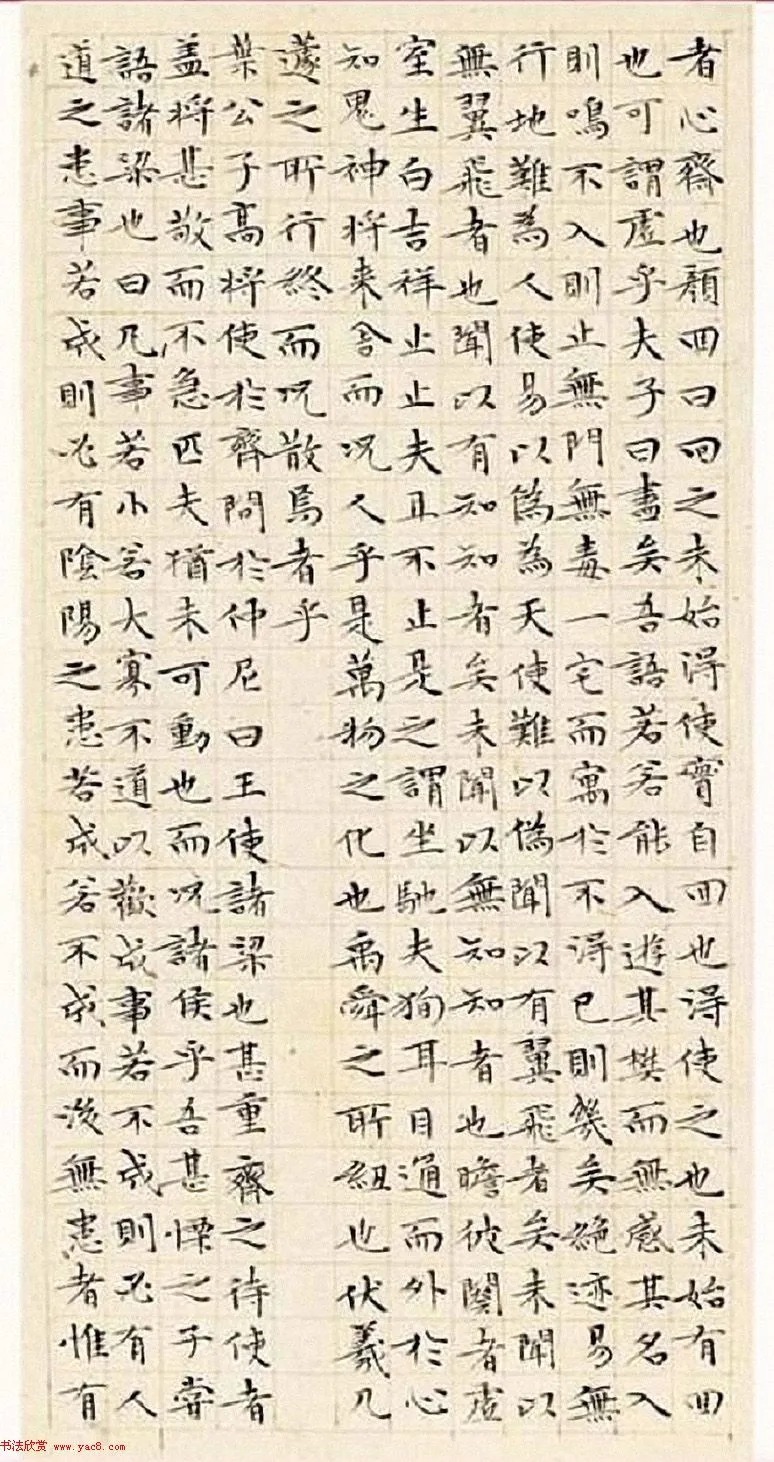 者心齋也顏回曰回之未始得使實自回也得使之也未始有回
也可謂虛乎夫子曰盡矣吾語若若能入遊其樊而無感其名入
則鳴不入則止無門無毒一宅而寓於不得已則幾矣絕迹易無
行地難為人使易以偽為天使難以偽聞以有翼飛者矣未聞以
無翼飛者也聞以有知知者矣未聞以無知知者也瞻彼闋者虛
室生白吉祥止止夫且不止是之謂坐馳夫狥耳目通而外於心
知鬼神將来舍而况人乎是萬物之化也禹舜之所紐也伏羲几
蘧之所行終而况散焉者乎
葉公子高將使於齊問於仲尼曰王使諸梁也甚重齊之待使者
盖將甚敬而不急匹夫猶未可動也而况諸侯乎吾甚慄之子嘗
語諸梁也曰凡事若小若大寡不道以歡成事若不成則必有人
道之患事若成則必有陰陽之患若成若不成而後無患者惟有
书法欣赏 www.yac8.com